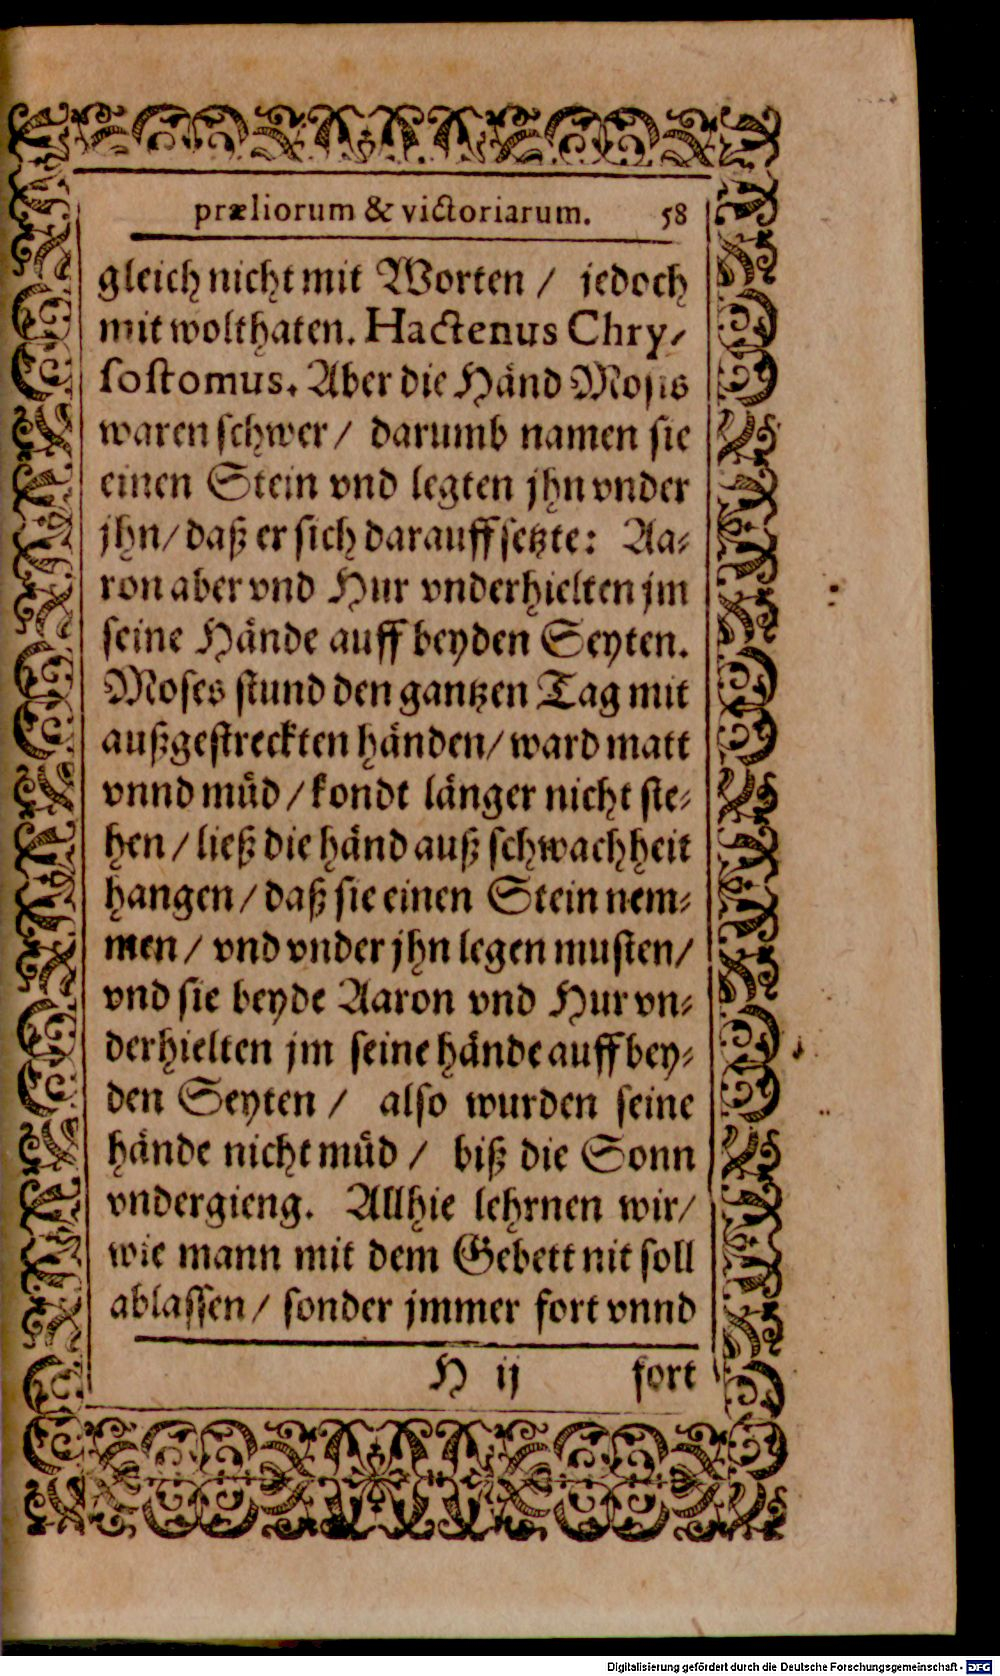 præliorum & victoriarum. 58
gleich nicht mit Worten / jedoch
mit wolthaten. Hactenus Chry-
sostomus. Aber die Händ Mosis
waren schwer / darumb namen sie
einen Stein vnd legten jhn vnder
jhn / daß er sich darauff setzte: Aa-
ron aber vnd Hur vnderhielten jm
seine Hände auff beyden Seyten.
Moses stund den gantzen Tag mit
außgestreckten händen / ward matt
vnnd müd / kondt länger nicht ste-
hen / ließ die händ auß schwachheit
hangen / daß sie einen Stein nem-
men / vnd vnder jhn legen musten /
vnd sie beyde Aaron vnd Hur vn-
derhielten jm seine hände auff bey-
den Seyten / also wurden seine
hände nicht müd / biß die Sonn
vndergieng. Allhie lehrnen wir /
wie mann mit dem Gebett nit soll
ablassen / sonder jmmer fort vnnd
H ij fort
Digitalisierung gefördert durch die Deutsche Forschungsgemeinschaft - DFG